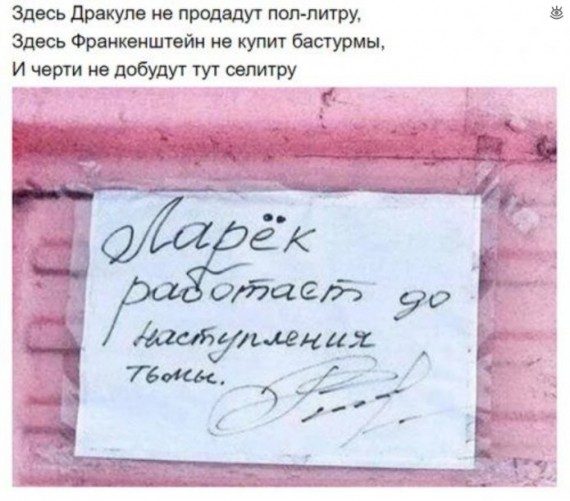 Здесь Дракуле не продадут пол-литру,
Здесь Франкенштейн не купит бастурмы,
И черти не добудут тут селитру
Ларёк
работает до
наступления
тьмы.